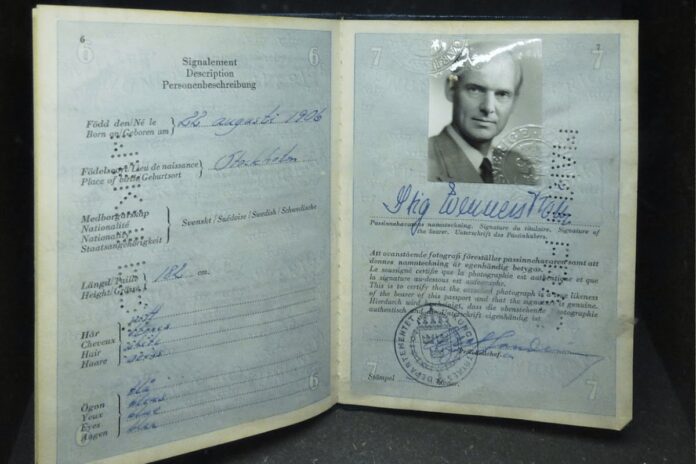 6
Signalement
Description
Personenbeschreibung
Född den/Né le
Born on/Geboren am
22 augusti 1906
Födelseort/Lieu de naissance
Place of birth/Geburtsort
Stockholm
Medborgarskap
Nationalité
Nationality
Staatsangehörigkeit
Svenskt/Suédoise/Swedish/Schwedische
Längd/Taille
Height/Grösse
182 cm.
Hår
Cheveux
Hair
Haare
Ögon
Yeux
Eyes
Augen
blå
bleus
blue
blau
6
7
7
Stig Wennerström
Passinnehavarens namnteckning. Signature du titulaire. Signature of
the bearer. Unterschrift des Passinhabers.
Att ovanstående fotografi föreställer passinnehavaren samt att
dennes namnteckning är egenhändig betygas.
Le soussigné certifie que la photographie est authentique et que
la signature au-dessous est autographe.
This is to certify that the annexed photograph is a true likeness
of the bearer of this passport and that the signature is genuine.
Hierdurch wird bescheinigt, dass die obenstehende Photographie
authentisch und die Unterschrift eigenhändig ist.
Stämpel
7